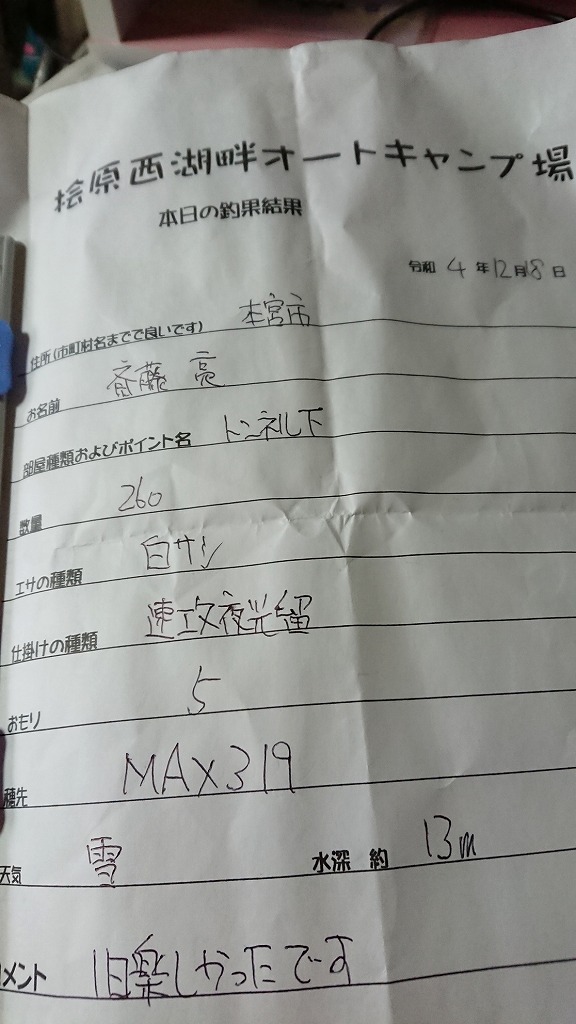 桧原西湖畔オートキャンプ場
本日の釣果結果
令和 4 年 12月18日
住所(市町村名までで良いです) 本宮市
お名前 斉藤 亮
部屋種類およびポイント名 トンネル下
数量 260
エサの種類 白サシ
仕掛けの種類 速攻夜光留
おもり 5
穂先 MAX319
天気 雪 水深 約 13m
メント 1日楽しかったです